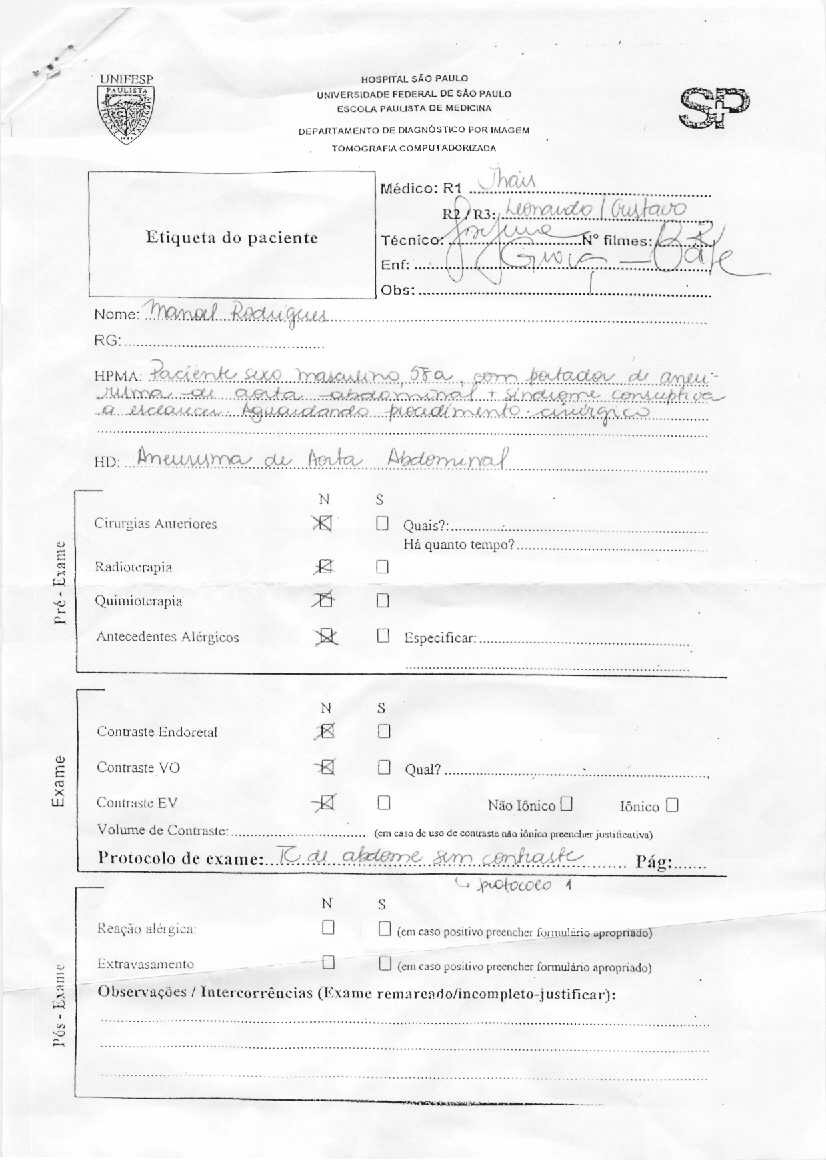 UNIFESP
PAULISTA
HOSPITAL SÃO PAULO
UNIVERSIDADE FEDERAL DE SÃO PAULO
ESCOLA PAULISTA DE MEDICINA
DEPARTAMENTO DE DIAGNÓSTICO POR IMAGEM
TOMOGRAFIA COMPUTADORIZADA
SP
Etiqueta do paciente
Médico: R1 Thais
R2 / R3: Leonardo / Gustavo
Técnico: Nº filmes:
Enf:
Obs:
Nome: Manoel Rodrigues
RG:
HPMA: Paciente sexo masculino, 58a, com portador de aneu-
risma de aorta abdominal + síndrome consuptiva
a esclarecer. Aguardando procedimento cirúrgico
HD: Aneurisma de Aorta Abdominal
Pré - Exame
N S
Cirurgias Anteriores Quais?:
Há quanto tempo?
Radioterapia
Quimioterapia
Antecedentes Alérgicos Especificar:
Exame
N S
Contraste Endoretal
Contraste VO Qual?
Contraste EV Não Iônico Iônico
Volume de Contraste: (em caso de uso de contraste não iônico preencher justificativa)
Protocolo de exame: TC de abdome sem contraste Pág:
↳ protocolo 1
Pós - Exame
N S
Reação alérgica: (em caso positivo preencher formulário apropriado)
Extravasamento (em caso positivo preencher formulário apropriado)
Observações / Intercorrências (Exame remarcado/incompleto-justificar):